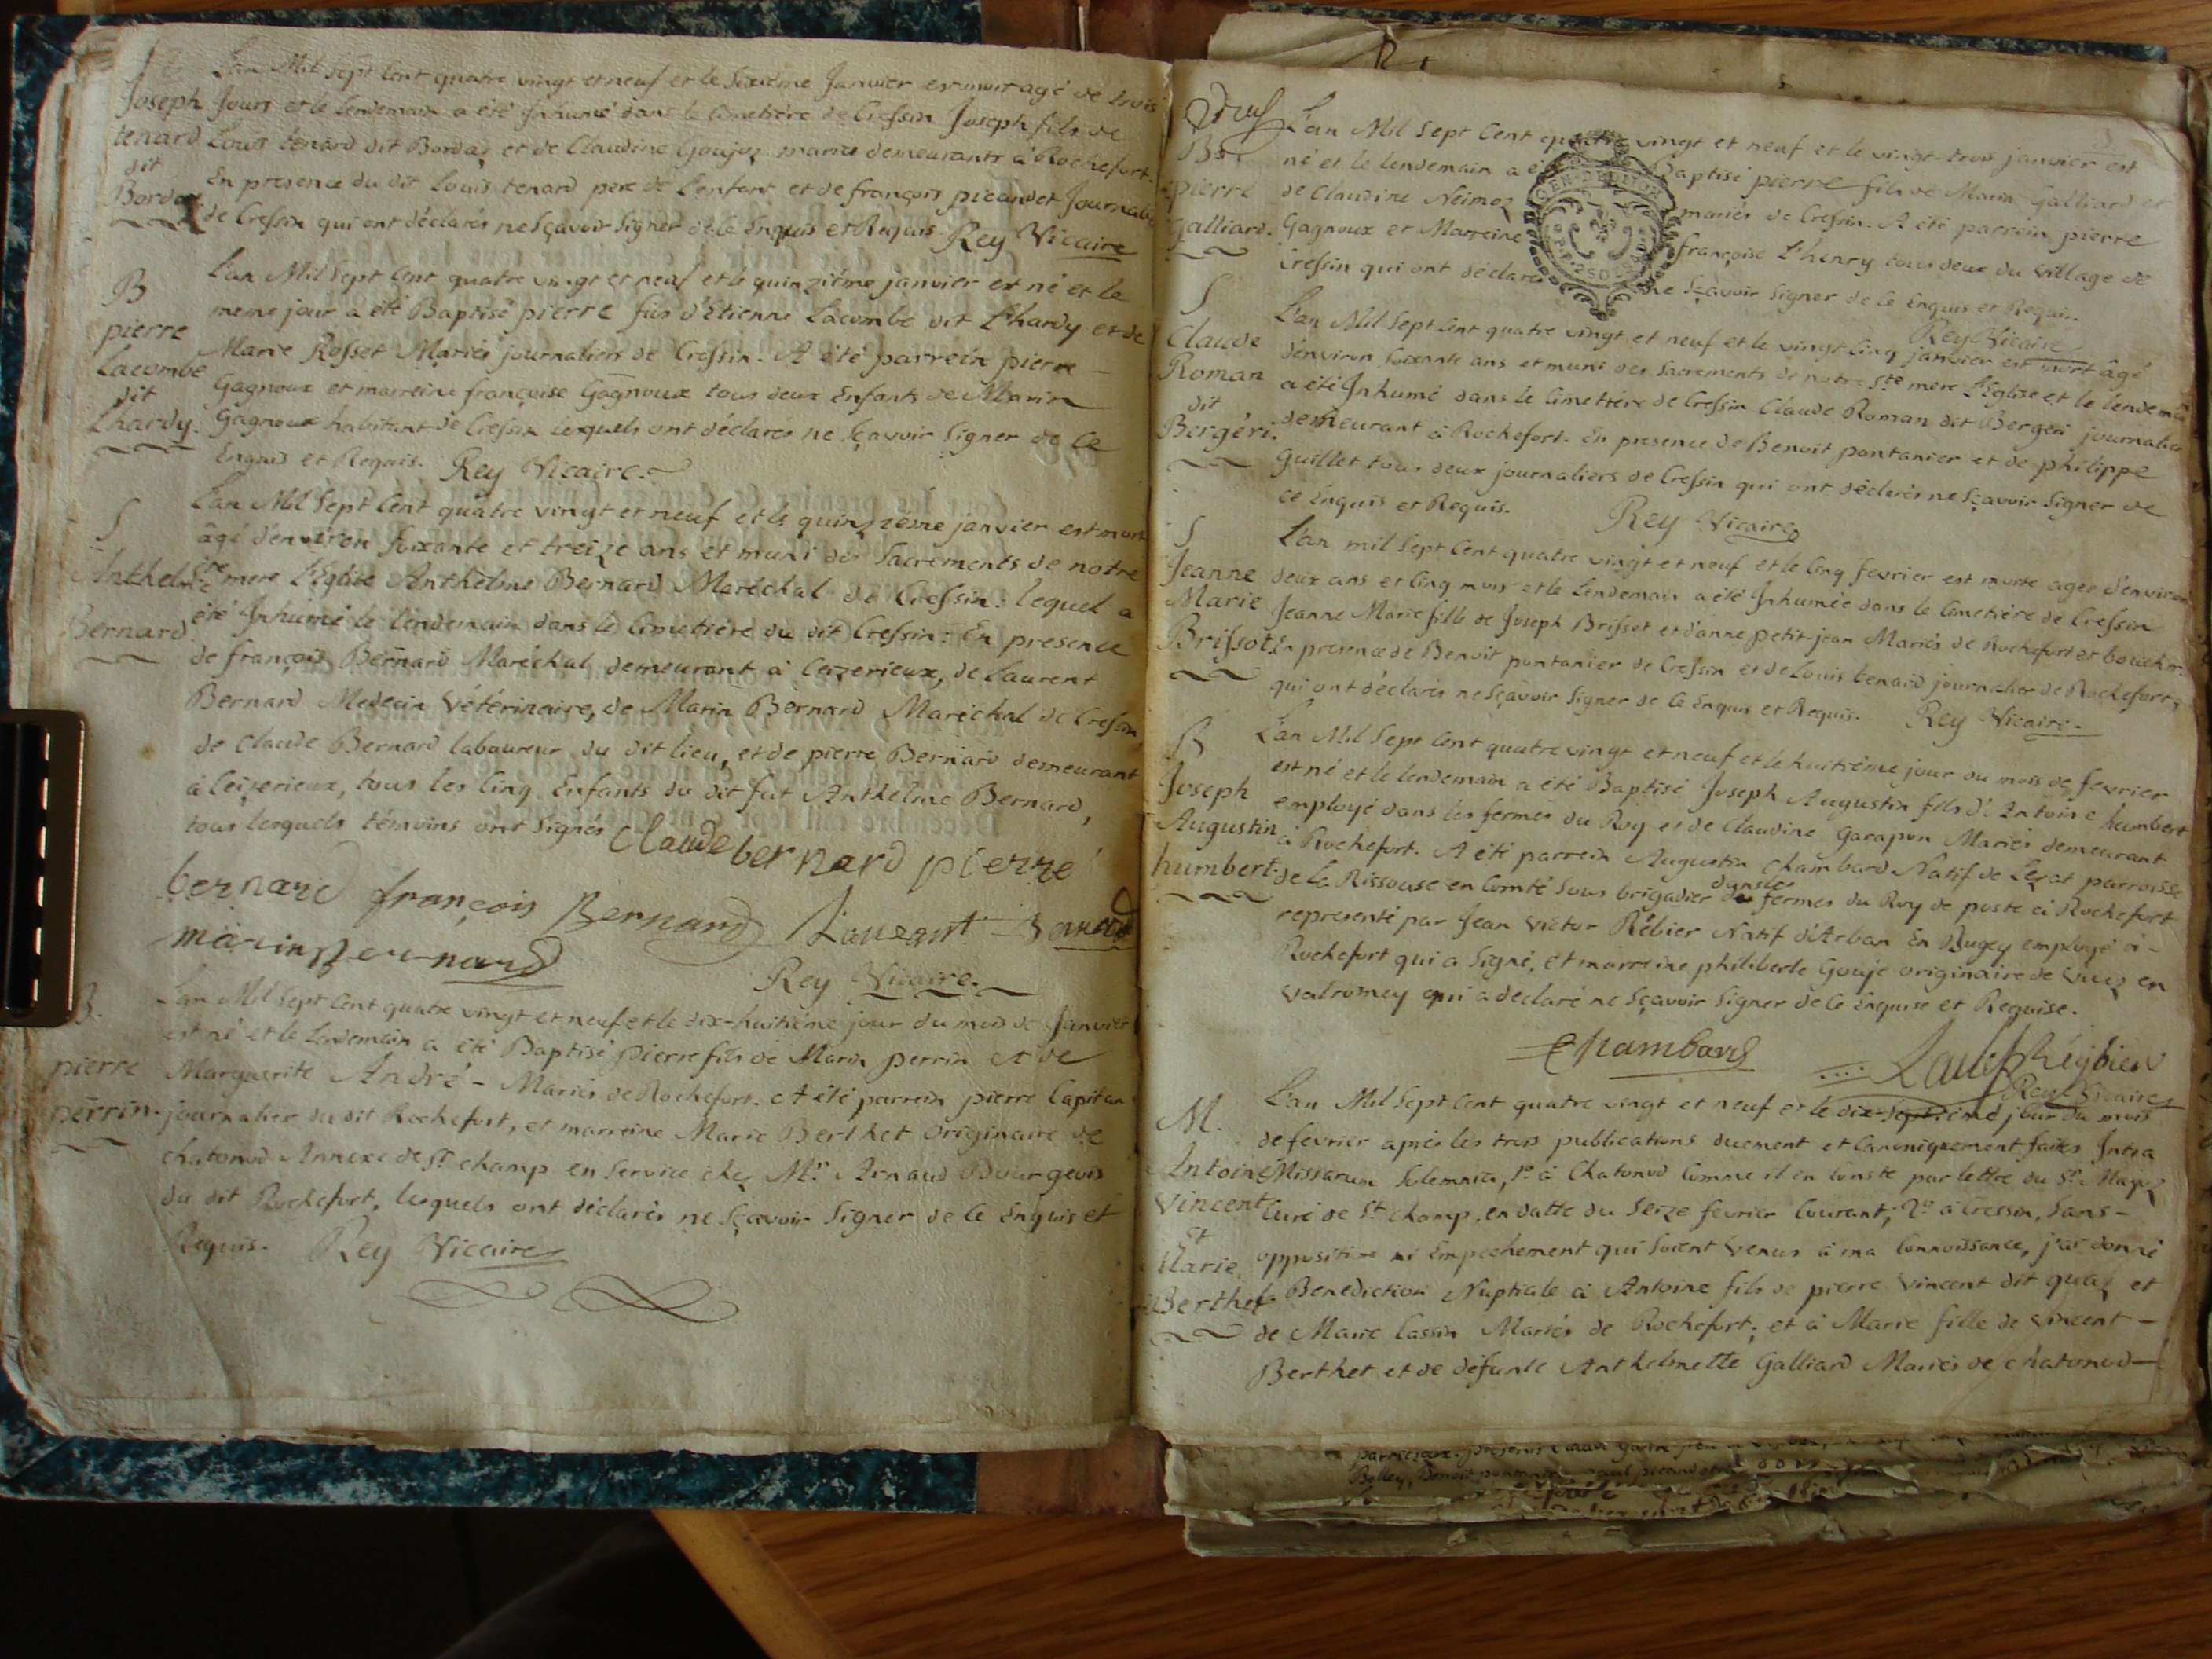 L'an Mil sept Cent quatre vingt et neuf et le Sixième Janvier est mort agé de trois
Joseph Jours et le lendemain a été Inhumé dans le Cimetière de Cressin Joseph fils de
tenard Louis tenard dit Bordaz et de Claudine Goujoz mariés demeurants à Rochefort.
dit En presence du dit Louis tenard pere de l'enfant et de françois picandet Journalier
Bordaz de Cressin qui ont déclarés ne Sçavoir Signer de Ce Enquis et Requis Rey Vicaire
B L'an Mil Sept Cent quatre vingt et neuf et le quinzième janvier est né et le
pierre meme jour a été Baptisé pierre fils d'Etienne Lacombe dit Lhardy et de
Lacombe Marie Rosset Mariés journaliers de Cressin. A été parrein pierre
dit Gagnoux et marreine françoise Gagnoux tous deux Enfants de Marin
Lhardy. Gagnoux habitant de Cressin lesquels ont déclarés ne Sçavoir Signer de Ce
Enquis et Requis. Rey Vicaire.
S L'an Mil Sept Cent quatre vingt et neuf et le quinzième janvier est mort
âgé d'environ Soixante et treize ans et muni des Sacrements de notre
Anthelme Ste mere l'Eglise Anthelme Bernard Maréchal de Cressin. lequel a
Bernard été Inhumé le lendemain dans le Cimetière du dit Cressin. En presence
de françois Bernard Maréchal demeurant à Ceizerieux, de Laurent
Bernard Medecin Vétérinaire, de Marin Bernard Maréchal de Cressin,
de Claude Bernard laboureur du dit lieu, et de pierre Bernard demeurant
à Ceizerieux, tous les Cinq Enfants du dit fut Anthelme Bernard,
tous lesquels témoins ont Signés Claude bernard pierre
bernard françois Bernard Laurent Bernard
marin Bernard
Rey Vicaire.
B. L'an Mil Sept Cent quatre vingt et neuf et le dix-huitième jour du mois de Janvier
est né et le Lendemain a été Baptisé pierre fils de Marin perrin et de
pierre Marguerite André - Mariés de Rochefort. A été parrein pierre Capitan
perrin. journalier du dit Rochefort, et marreine Marie Berthet originaire de
Chatonod Annexe de St champ en Service chez Mr. Arnaud Bourgeois
du dit Rochefort, lesquels ont déclarés ne Sçavoir Signer de Ce Enquis et
Requis. Rey Vicaire
L'an Mil Sept Cent quatre vingt et neuf et le vingt-trois janvier est
né et le lendemain a été Baptisé pierre fils de Marin Galliard et
pierre de Claudine Neimoz mariés de Cressin. A été parrein pierre
Galliard. Gagnoux et Marreine françoise Lhenry tous deux du village de
Cressin qui ont déclaré ne Sçavoir Signer de Ce Enquis et Requis.
Rey Vicaire
S L'an Mil Sept Cent quatre vingt et neuf et le vingt Cinq janvier est mort âgé
Claude d'environ Soixante ans et muni des Sacrements de notre Ste mere l'Eglise et le lendemain
Roman a été Inhumé dans le Cimetière de Cressin Claude Roman dit Bergéri journalier
dit demeurant à Rochefort. En presence de Benoit pontanier et de philippe
Bergéri. Guillet tous deux journaliers de Cressin qui ont déclarés ne Sçavoir Signer de
Ce Enquis et Requis. Rey Vicaire
S L'an mil Sept Cent quatre vingt et neuf et le Cinq fevrier est morte agée d'environ
Jeanne deux ans et Cinq mois et le Lendemain a été Inhumée dans le Cimetière de Cressin
Marie Jeanne Marie fille de Joseph Brissot et d'anne petit-jean Mariés de Rochefort
Brissot. En presence de Benoit pontanier de Cressin et de Louis tenard journalier de Rochefort,
qui ont déclarés ne Sçavoir Signer de Ce Enquis et Requis. Rey Vicaire.
B L'an Mil Sept Cent quatre vingt et neuf et le huitième jour du mois de fevrier
est né et le lendemain a été Baptisé Joseph Augustin fils d'Antoine humbert
Joseph employé dans les fermes du Roy et de Claudine Garapon Mariés demeurant
Augustin à Rochefort. A été parrein Augustin Chambard Natif de Lezat parroisse
humbert. de la Rissouse en Comté Sous brigadier dans les fermes du Roy de poste à Rochefort
representé par Jean Victor Rébier Natif d'Arban En Bugey employé à -
Rochefort qui a Signé, et marreine philiberte Gouje originaire de Vieuz en
Valromey qui a déclaré ne Sçavoir Signer de Ce Enquise et Requise.
Chambard
Rey Vicaire
M. L'an Mil Sept Cent quatre vingt et neuf et le dix-septième jour du mois
de fevrier après les trois publications duement et Canoniquement faites Intra
Antoine Missarum Solemnia, 1º à Chatonod Comme il en Conste par lettre du Sr.
Vincent Curé de St Champ, en datte du Seize fevrier Courant; 2º à Cressin, Sans -
et opposition ni Empechement qui Soient Venus à ma Connoissance, j'ai donné
Marie la Benediction Nuptiale à Antoine fils de pierre Vincent dit et
Berthet de Marie Cassin Mariés de Rochefort; et à Marie fille de Vincent -
Berthet et de défunte Anthelmette Galliard Mariés de Chatonod -